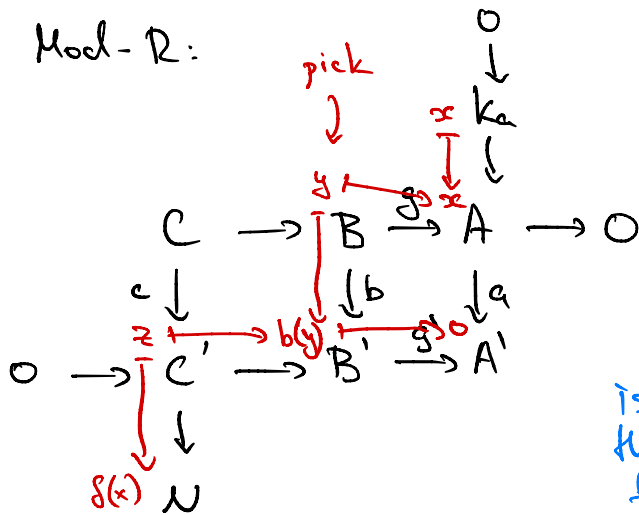 Mod-R:
O
pick
x Ka
y g x
C B A O
c b a
z b(y) g' o
O C' B' A'
δ(x) N